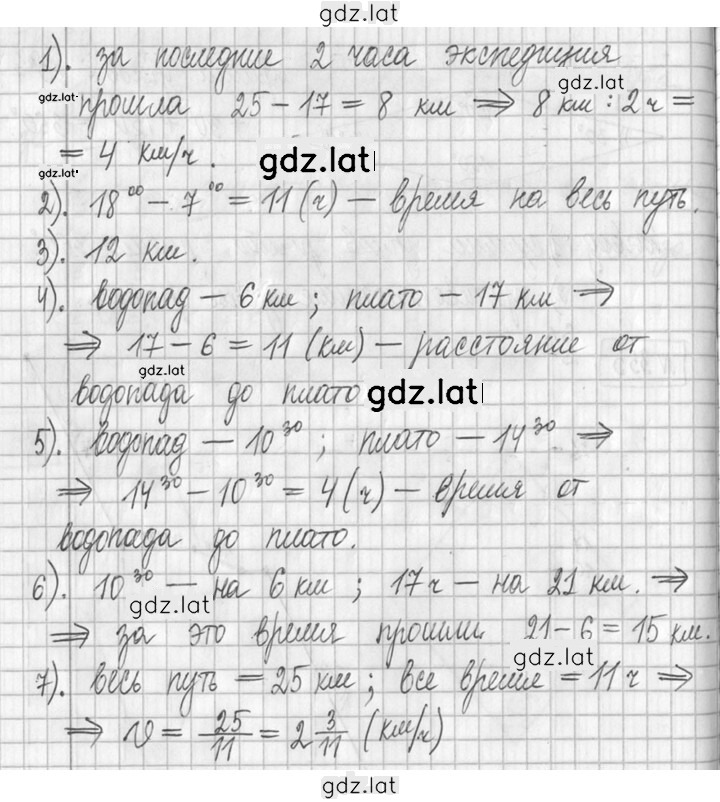 gdz.lat
1). за последние 2 часа экспедиция
gdz.lat
gdz.lat
прошла 25 − 17 = 8 км ⇒ 8 км : 2 ч =
= 4 км/ч.
gdz.lat
gdz.lat
2). 18⁰⁰ − 7⁰⁰ = 11 (ч) — время на весь путь.
3). 12 км.
4). водопад — 6 км ; плато — 17 км ⇒
⇒ 17 − 6 = 11 (км) — расстояние от
водопада до плато
gdz.lat
5). водопад — 10³⁰ ; плато — 14³⁰ ⇒
⇒ 14³⁰ − 10³⁰ = 4 (ч) — время от
водопада до плато.
6). 10³⁰ — на 6 км ; 17 ч — на 21 км. ⇒
gdz.lat
⇒ за это время прошли 21 − 6 = 15 км.
gdz.lat
7). весь путь = 25 км ; все время = 11 ч ⇒
⇒ v = 25/11 = 2 3/11 (км/ч)
gdz.lat